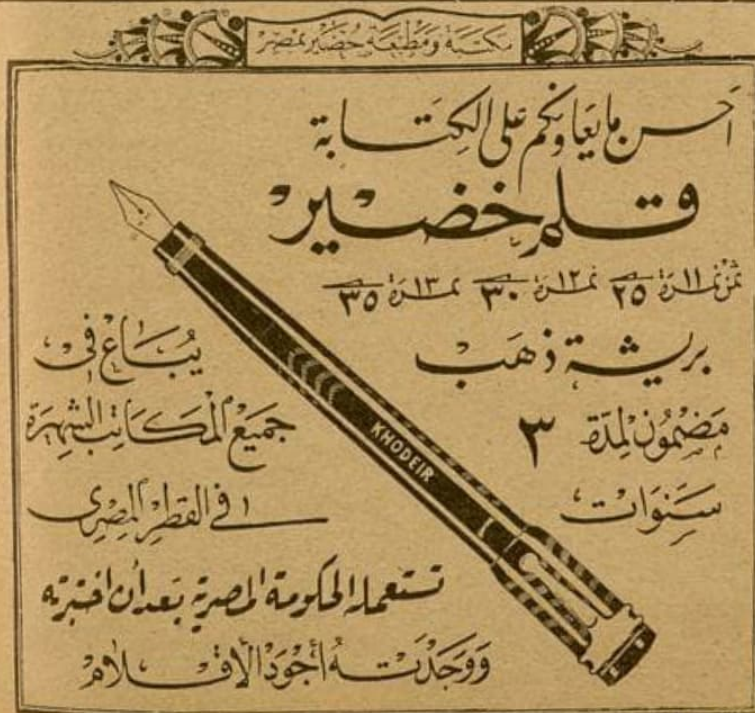 مكتبة ومطبعة خضير بمصر
أحسن ما يعاونكم على الكتابة
قلم خضير
ثمن نمرة ١١ ٢٥ نمرة ١٢ ٣٠ نمرة ١٣ ٣٥
بريشة ذهب
مضمون لمدة ٣
سنوات
KHODEIR
يُباع في
جميع المكاتب الشهيرة
في القطر المصري
تستعمله الحكومة المصرية بعد أن اختبرته
ووجدته أجود الأقلام